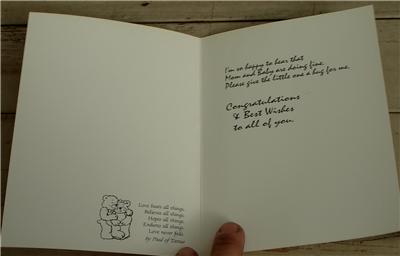 Love bears all things,
Believes all things,
Hopes all things,
Endures all things.
Love never fails.
by Paul of Tarsus
I'm so happy to hear that
Mom and Baby are doing fine.
Please give the little one a hug for me.
Congratulations
& Best Wishes
to all of you.